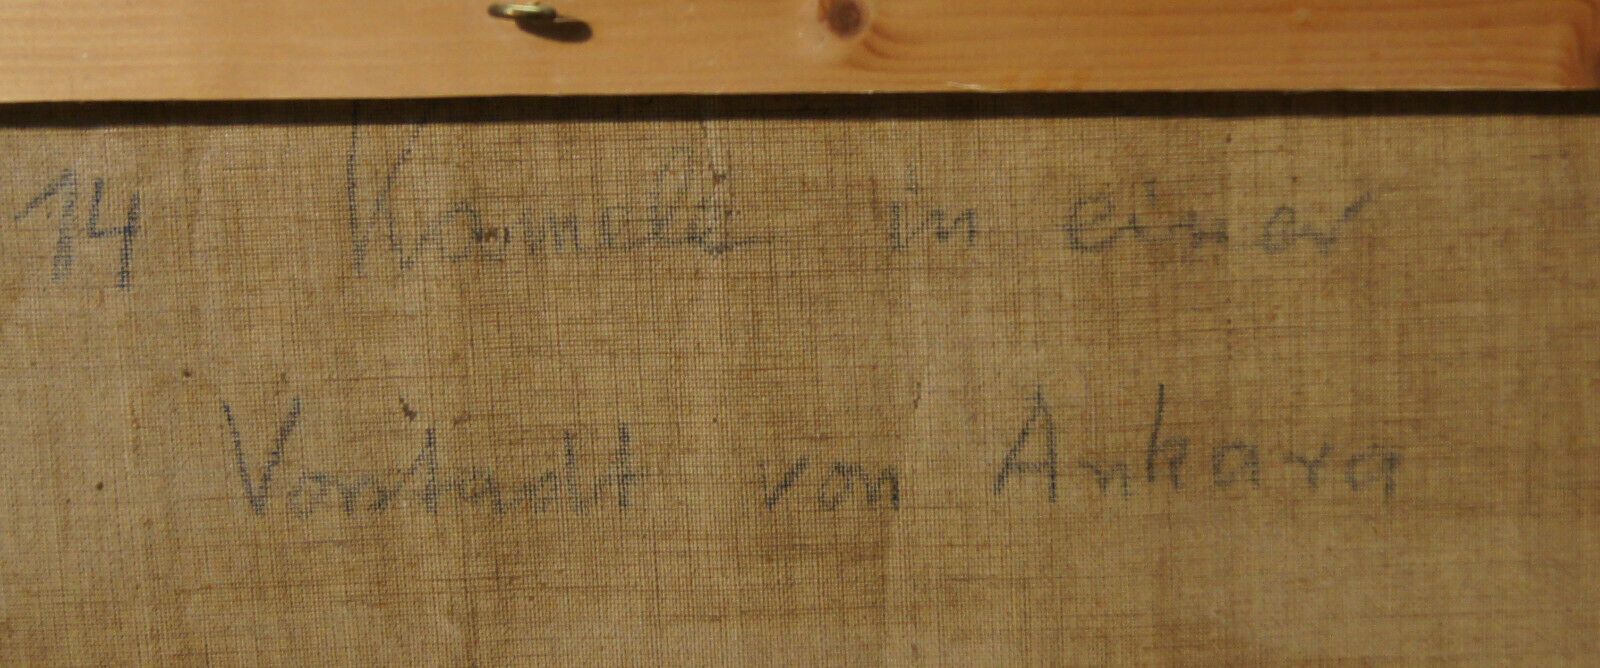 14 Kamele in einer
Vorstadt von Ankara